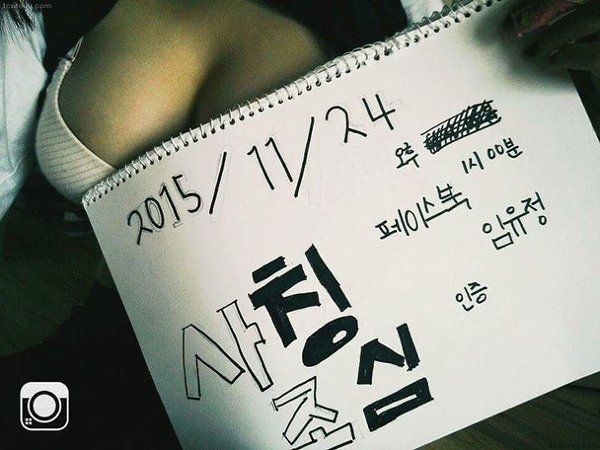 2015/11/24
오후
1시 00분
페이스북
임유정
인증
사칭
조심